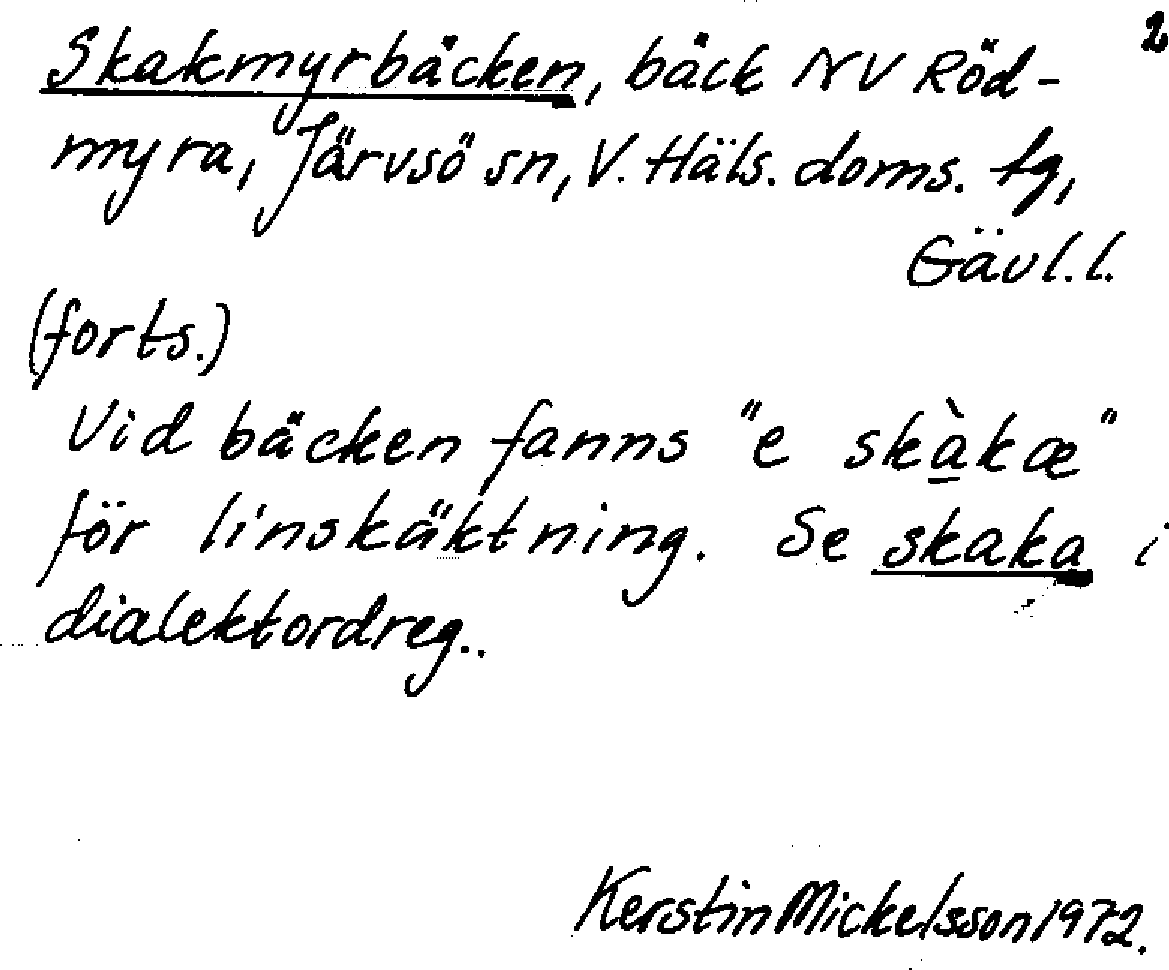 2
Skakmyrbäcken, bäck NV Röd-
myra, Järvsö sn, V. Häls. doms. tg,
Gävl. l.
(forts.)
Vid bäcken fanns "e skàkæ"
för linskäktning. Se skaka i
dialektordreg..
Kerstin Mickelsson 1972.